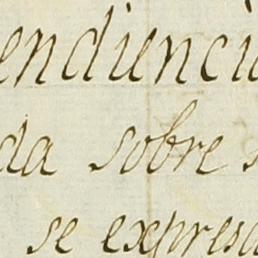 endiencia
da sobre s
se expresa